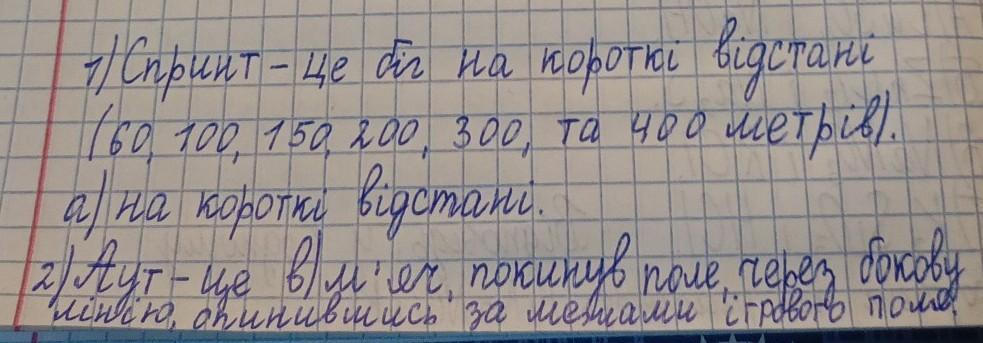 1) Спринт - це біг на короткі відстані
(60, 100, 150, 200, 300, та 400 метрів).
а) на короткі відстані.
2) Аут - це в) м'яч, покинув поле, через бокову
лінію, опинившись за межами ігрового поля.